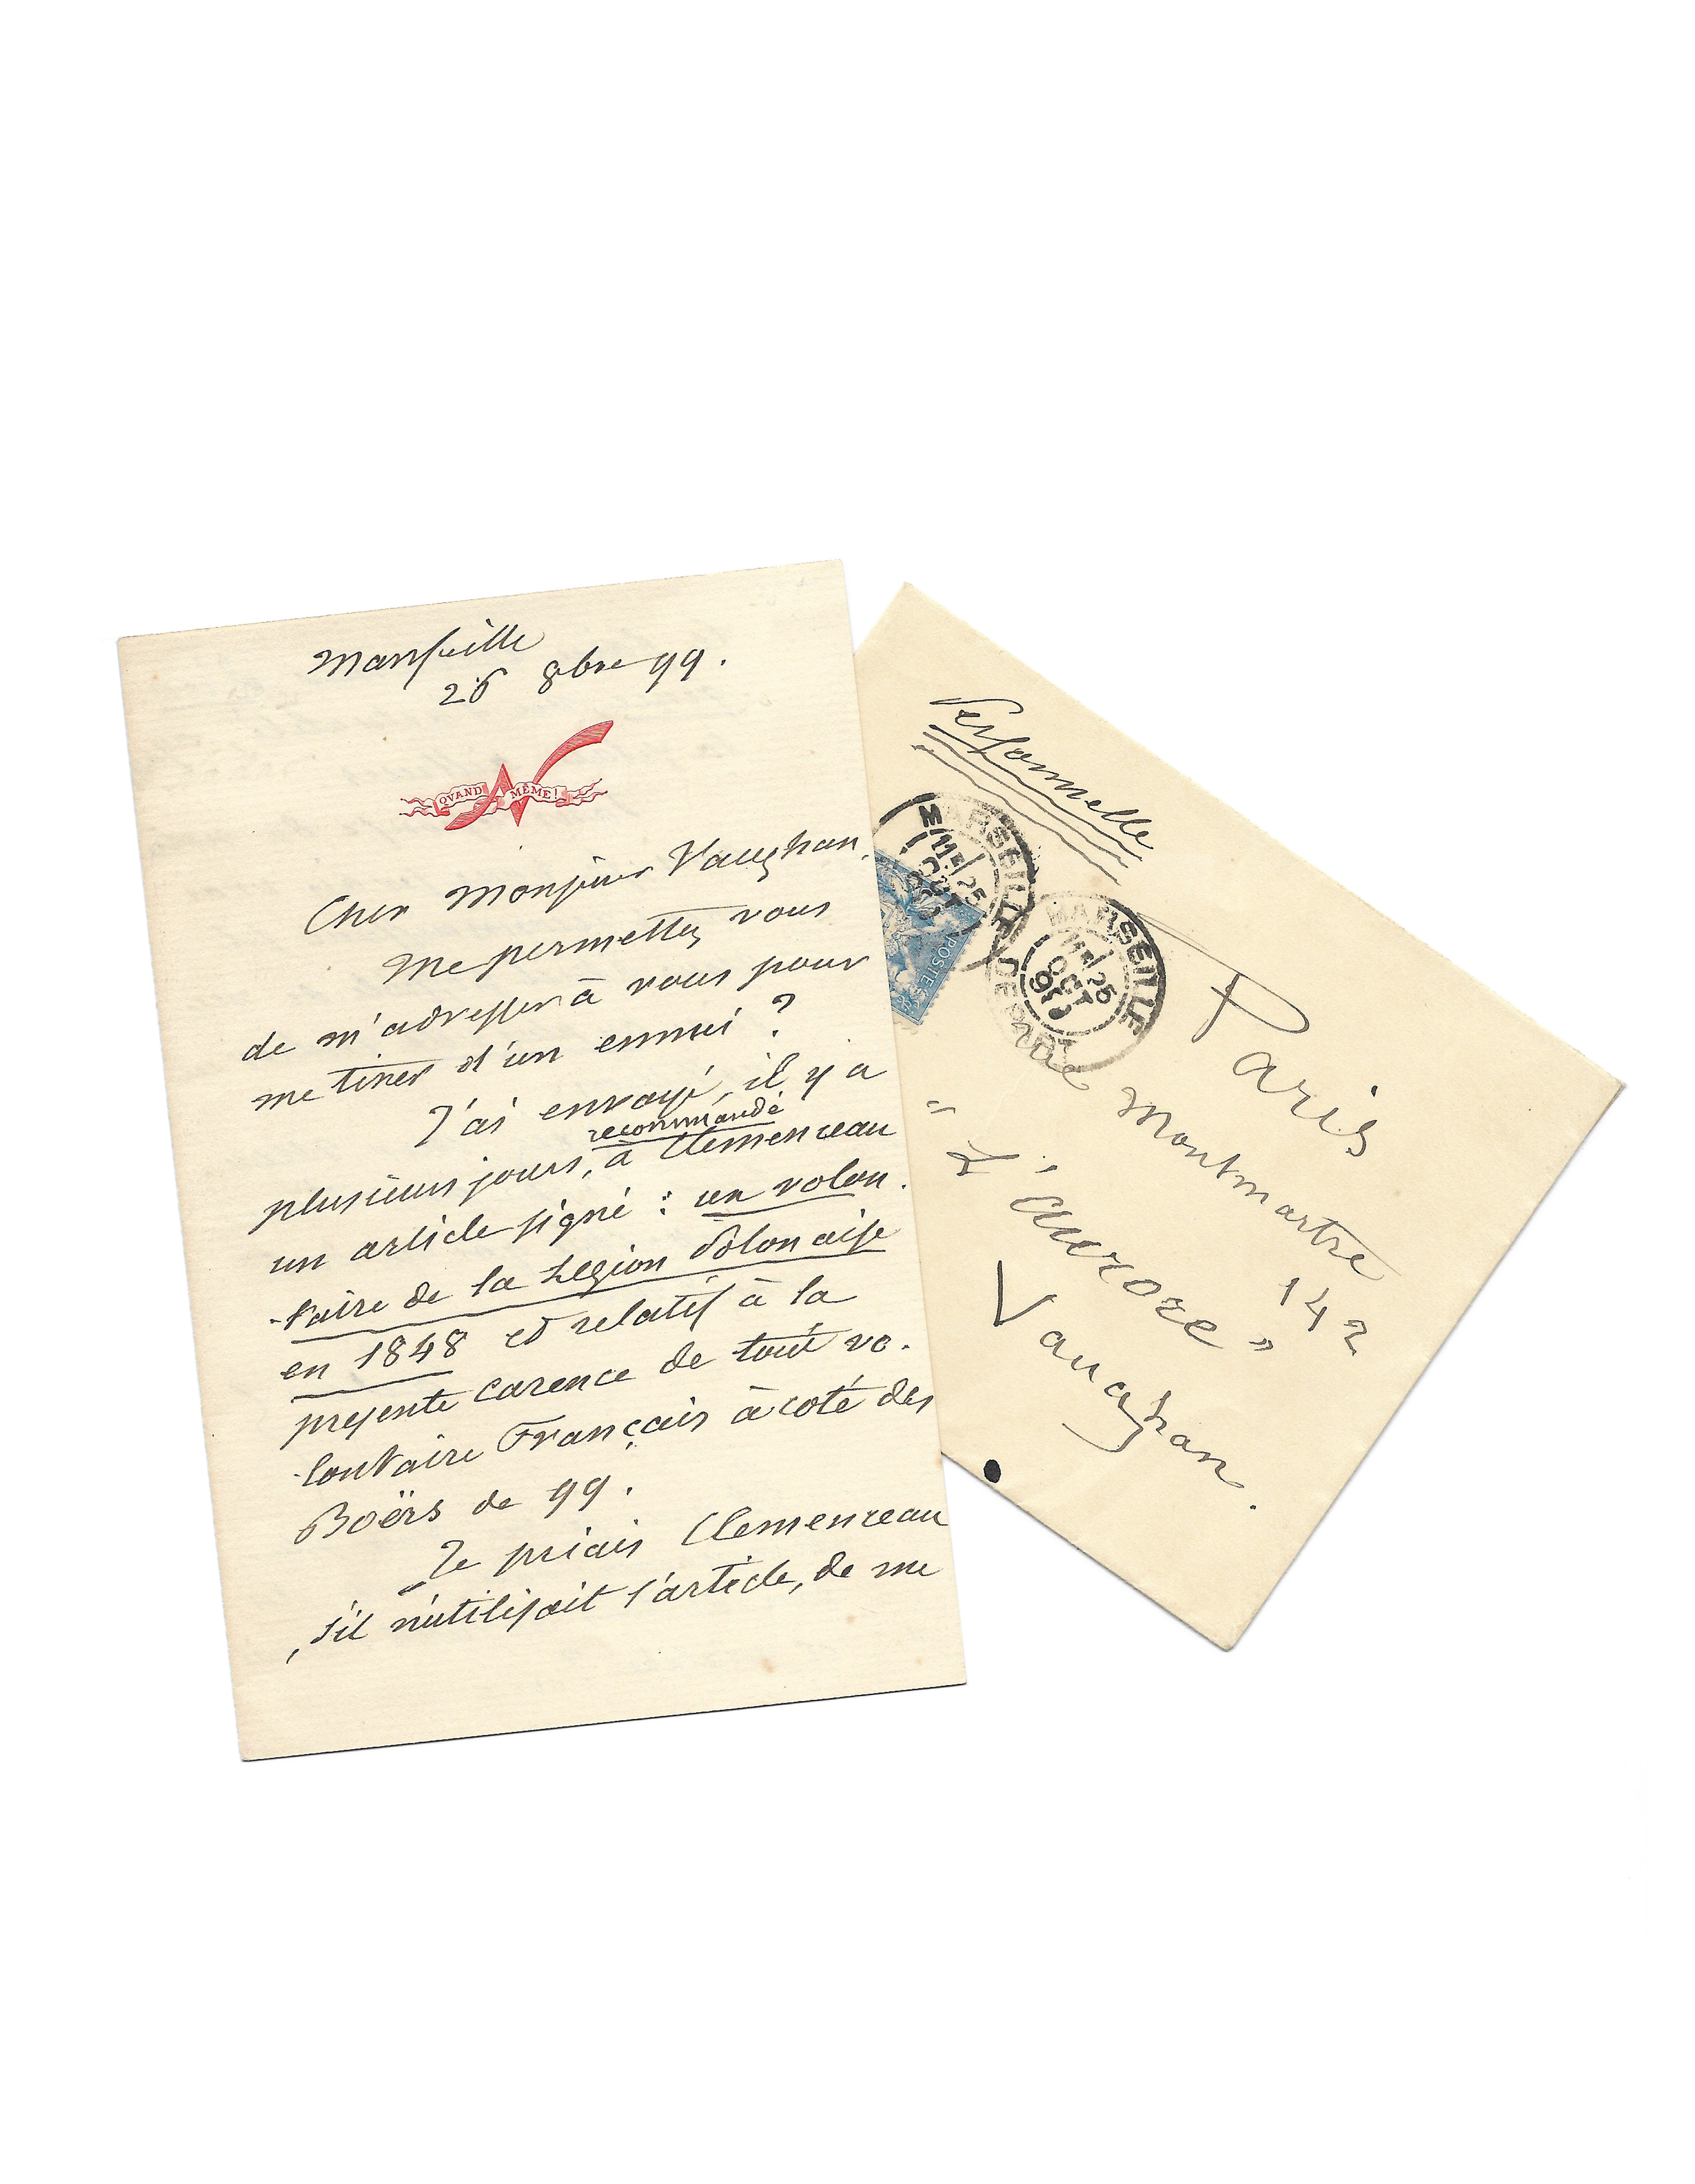 Marseille
26 8bre 99.
QVAND MÊME!
Cher Monsieur Vaughan,
Me permettez vous
de m'adresser à vous pour
me tirer d'un ennui ?
J'ai envoyé, il y a
recommandé
plusieurs jours, à Clemenceau
un article signé : un volon.
-taire de la Légion Polonaise
en 1848 et relatif à la
presente carence de tout vo.
-lontaire Français à coté des
Boërs de 99.
Je priais Clemenceau
, s'il n'utilisait l'article, de me
Personnelle
MARSEILLE
25
OCT
99
MARSEILLE
25
OCT
99
POSTE
Paris
rue Montmartre
142
" L'aurore "
Vaughan.